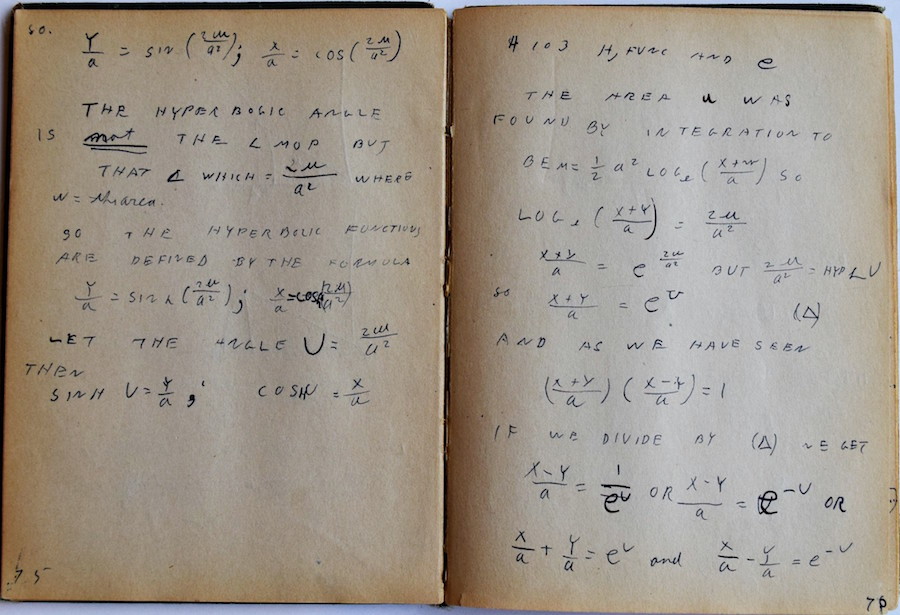 so.
Y/a = SIN (2u/a²); X/a = COS (2u/a²)
THE HYPERBOLIC ANGLE
IS not THE ∠ MOP BUT
THAT ∠ WHICH = 2u/a² WHERE
u = the area.
SO THE HYPERBOLIC FUNCTIONS
ARE DEFINED BY THE FORMULA
Y/a = SINh (2u/a²); X/a = COSh (2u/a²)
LET THE ANGLE U = 2u/a²
THEN
SINH U = Y/a; COSHU = X/a
75
# 103 H, FUNC AND e
THE AREA u WAS
FOUND BY INTEGRATION TO
BE u = 1/2 a² LOGe (X+Y/a) SO
LOGe (X+Y/a) = 2u/a²
X+Y/a = e 2u/a² BUT 2u/a² = HYP ∠ U
SO X+Y/a = e^U (Δ)
AND AS WE HAVE SEEN
(X+Y/a) (X-Y/a) = 1
IF WE DIVIDE BY (Δ) WE GET
X-Y/a = 1/e^U OR X-Y/a = e^-U OR
X/a + Y/a = e^U and X/a - Y/a = e^-U
76